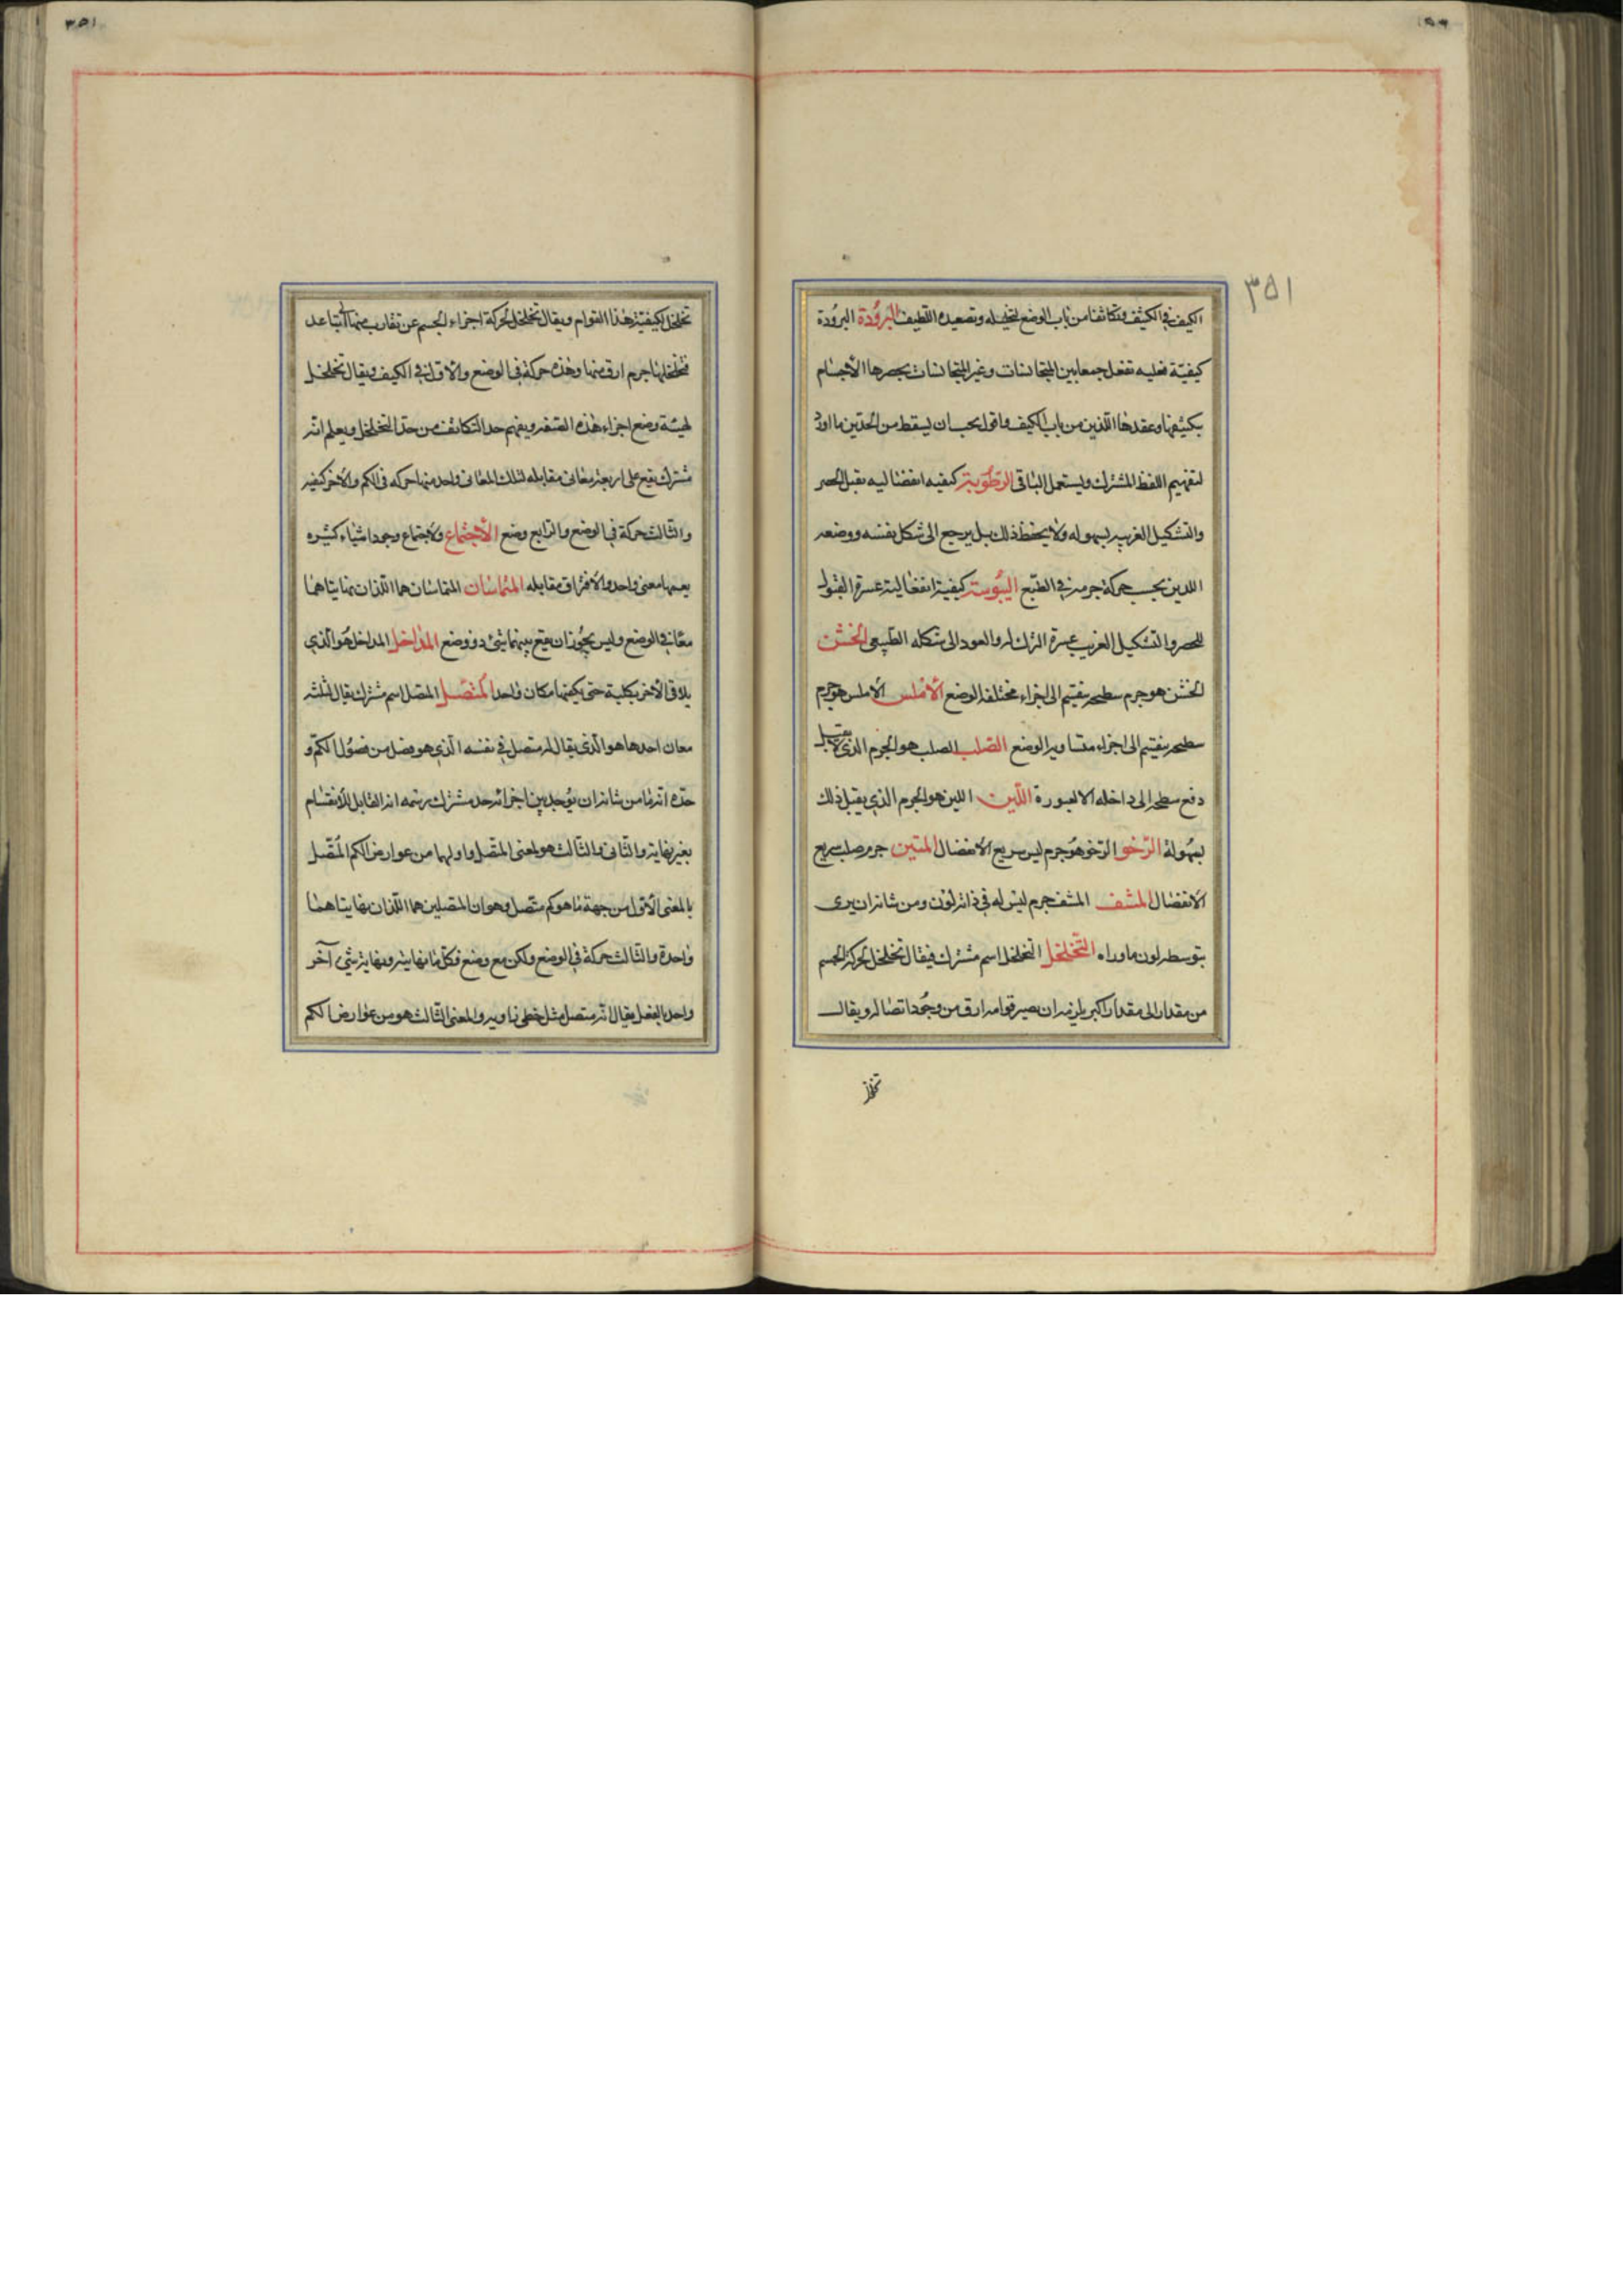 ٣٥١
الكيف في الكثيف وتكاثفا من باب الوضع لتحليله وتصعيده اللطيف البرودة البرودة
كيفيّة فعليه تفعل جمعا بين المتجانسات وغير المتجانسات بحصرها الأجسام
بكثيفها وعقدها اللذين من باب الكيف واقول يجب ان يسقط من الحدين ما اورد
لتفهيم اللفظ المشترك ويستعمل الباقى الرطوبة كيفيه انفعاليه تقبل الحصر
والتشكيل الغريب بسهوله ولا يحفظ ذلك بل يرجع الى شكل نفسه ووضعه
اللذين بحسب حركة جرمه في الطبع اليبوسة كيفية انفعالية عسرة القبول
للحصر والتشكيل الغريب عسرة الترك له والعود الى شكله الطبيعى الخشن
الخشن هو جرم سطحه ينقسم الى اجزاء مختلفة الوضع الأملس الأملس هو جرم
سطحه ينقسم الى اجزاء متساوية الوضع الصلب الصلب هو الجرم الذى لا يقبل
دفع سطحه الى داخله الا بعسورة اللّين اللين هو الجرم الذي يقبل ذلك
بسهولة الرّخو الرّخو هو جرم ليّن سريع الانفصال المتين جرم صلب سريع
الانفصال المشف المشف جرم ليس له في ذاته لون ومن شانه ان يرى
بتوسطه لون ماوراه التّخلخل التخلخل اسم مشترك فيقال تخلخل لحركة الجسم
من مقدار الى مقدار اكبر يلزمه ان يصير قوامه ارق من وجود اتصاله ويقال
تخلخل
٣٥١
تخلخل لكيفيّة هذا القوام ويقال تخلخل لحركة اجزاء الجسم عن تقارب بينها الى تباعد
فتخللها جرم ارق منها وهذه حركة في الوضع والأول في الكيف ويقال تخلخل
لهيئة وضع اجزاء هذه الصفة ويفهم حد التكاثف من حدّ التخلخل ويعلم انّه
مشترك يقع على اربعة معانى مقابله لتلك المعانى واحد منها حركه فى الكم والآخر كيفيه
والثّالث حركة في الوضع والرّابع وضع الأجتماع والاجتماع وجود اشياء كثيره
يعمها معنى واحد والأفتراق مقابله المتماسّان المتماسان هما اللّذان نهايتاهما
معًا في الوضع وليس يجوز ان يقع بينهما شئ ذو وضع المداخل المداخل هو الّذي
يلاقى الآخر بكليته حتى يكفيهما مكان واحد المتّصل المتصل اسم مشترك يقال لثلثه
معان احدها هو الّذى يقال له متصل في نفسه الّذي هو فصل من فصول الكمّ و
حدّه انّه ما من شانه ان يوجد بين اجزائه حد مشترك ورسمه انه القابل للأنقسام
بغير نهاية والثّانى والثّالث هو لمعنى المتّصل واولهما من عوارض الكم المتّصل
بالمعنى الأوّل من جهة ما هو كم متّصل وهو ان المتصلين هما اللّذان نهايتاهما
واحدة والثّالث حركة في الوضع ولكن مع وضع فكلّ ما نهايته ونهاية شئ آخر
واحد بالفعل يقال انّه متصل مثل خطى زاوية والمعنى الثّالث هو من عوارض الكم